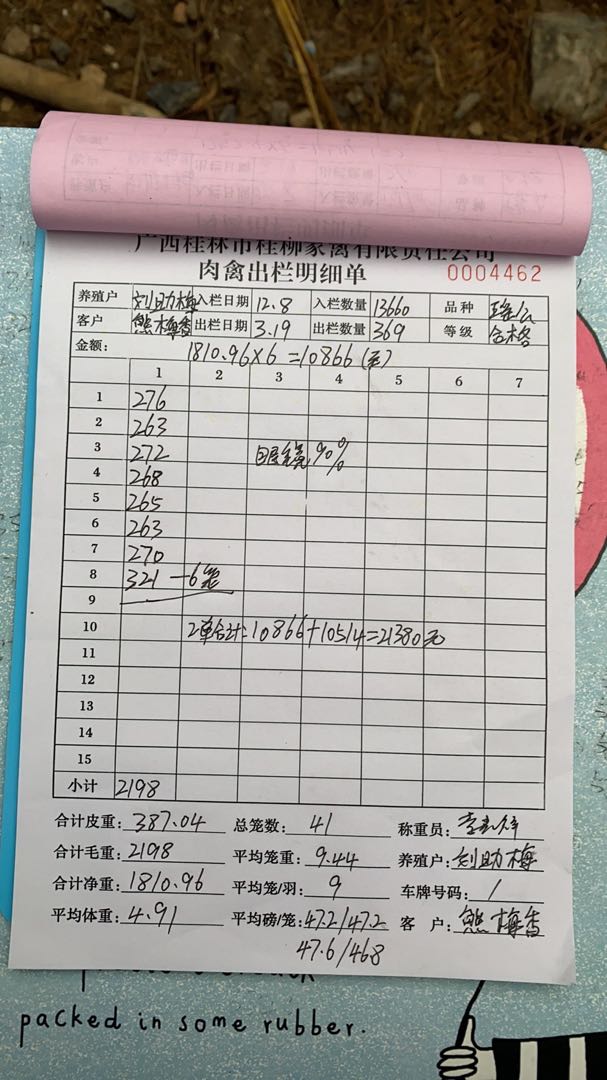 广西桂林市桂柳家禽有限责任公司
肉禽出栏明细单 0004462
养殖户 刘助梅 入栏日期 12.8 入栏数量 13660 品种
客户 熊梅香 出栏日期 3.19 出栏数量 369 等级 合格
金额: 1810.96×6=10866(元)
1 2 3 4 5 6 7
1 276
2 263
3 272 90%
4 268
5 265
6 263
7 270
8 321 —6笼
9
10 2单合计:10866+10514=21380元
11
12
13
14
15
小计 2198
合计皮重: 387.04 总笼数: 41 称重员:
合计毛重: 2198 平均笼重: 9.44 养殖户: 刘助梅
合计净重: 1810.96 平均笼/羽: 9 车牌号码: /
平均体重: 4.91 平均磅/笼: 47.2/47.2 客 户: 熊梅香
47.6/46.8
packed in some rubber.